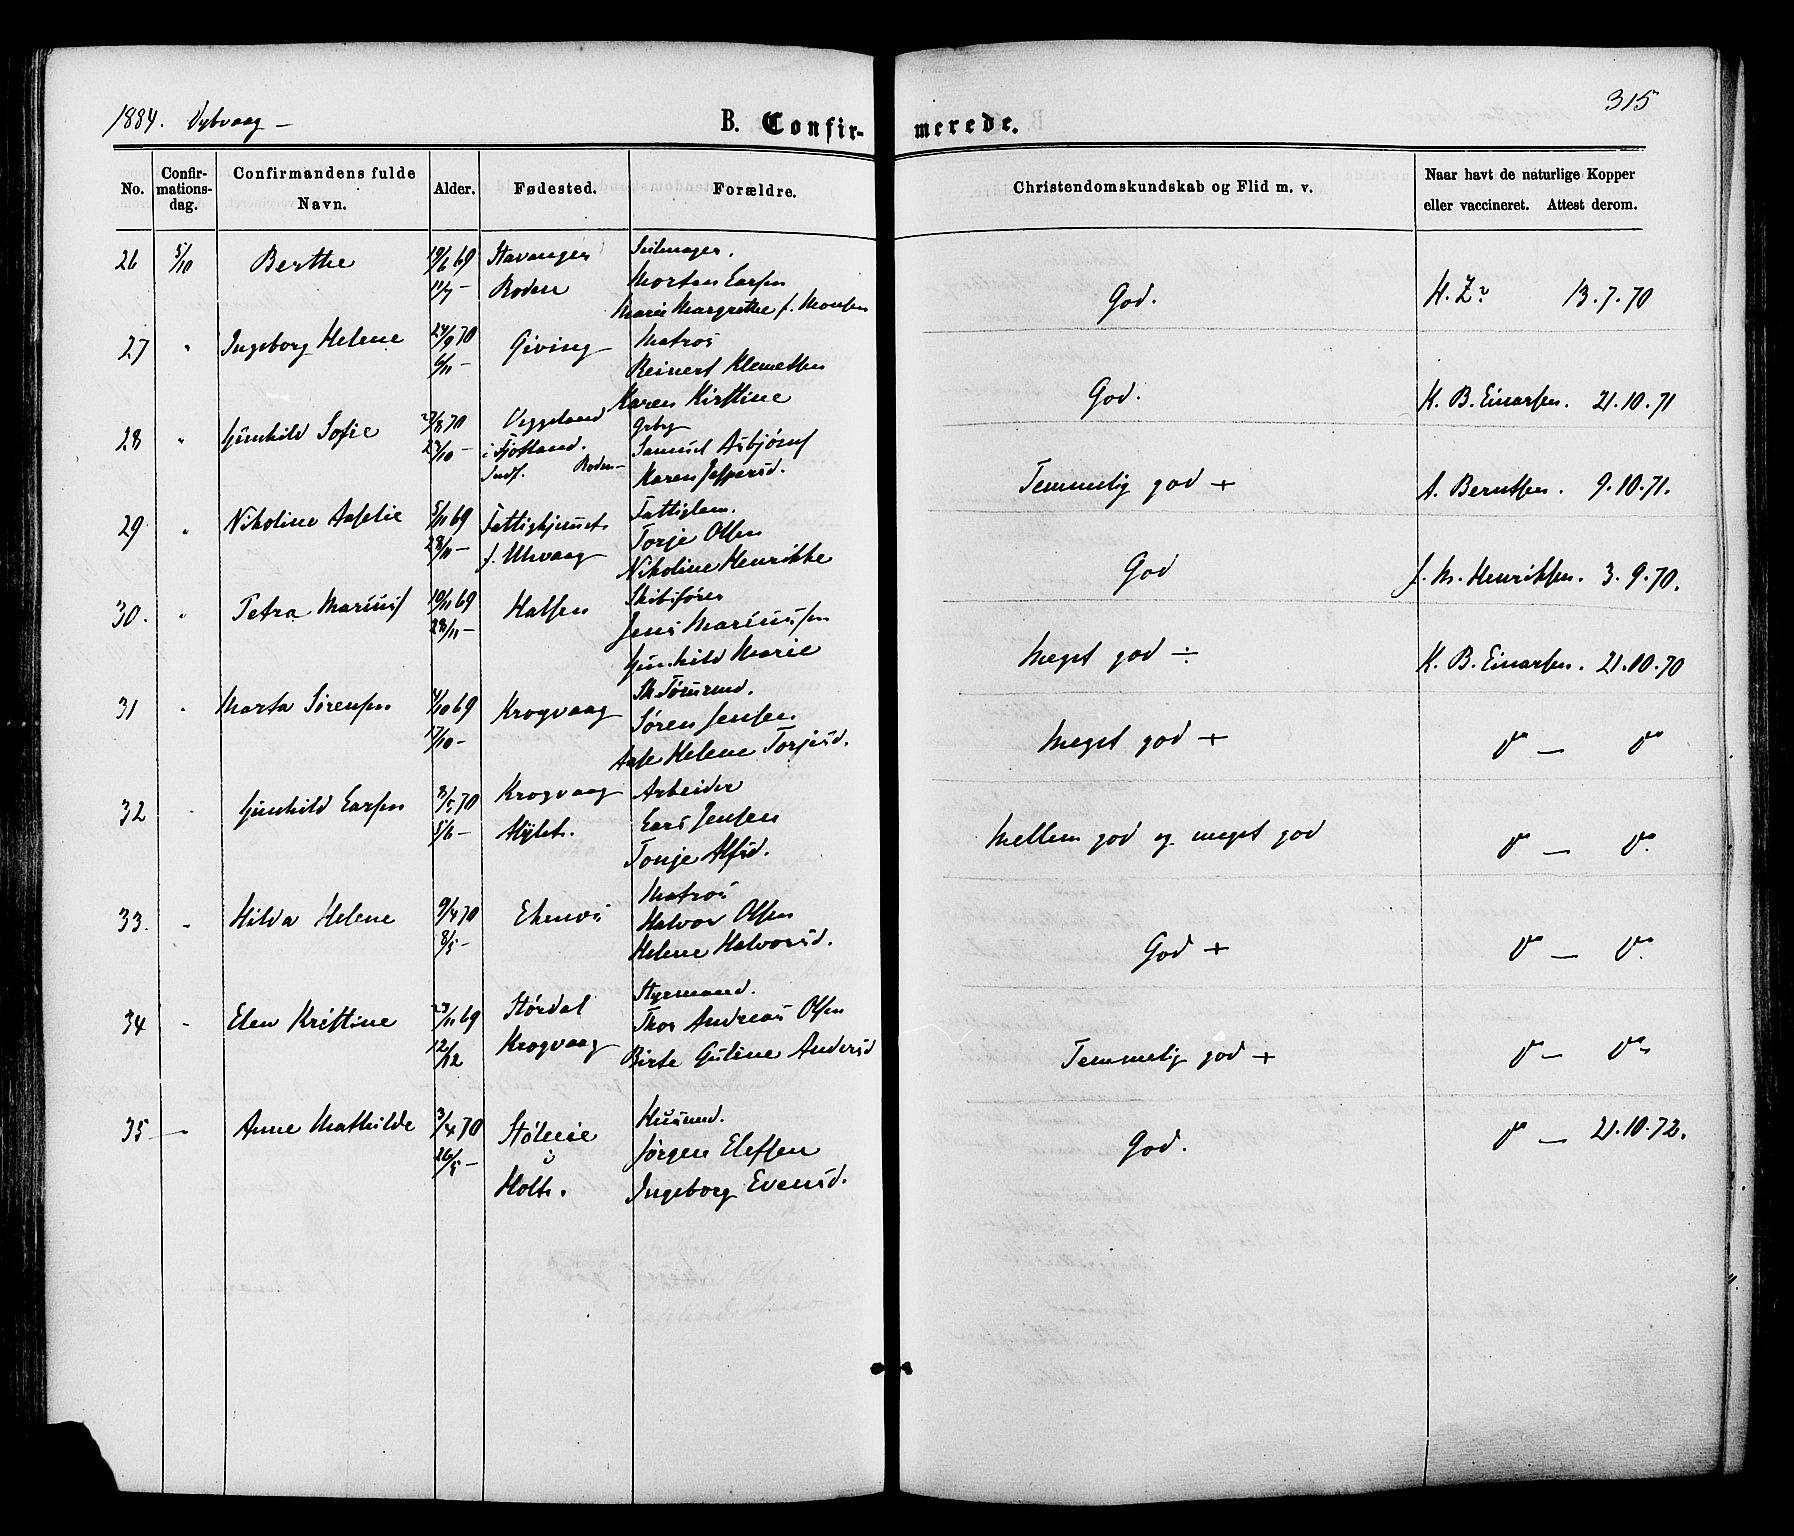 1884. Dybvaag — B. Confirmerede. 315
No. Confirmationsdag. Confirmandens fulde Navn. Alder. Fødested. Forældre. Christendomskundskab og Flid m. v. Naar havt de naturlige Kopper eller vaccineret. Attest derom.
26 5/10 Berthe 19/6 69 Stavanger Seilmager.
11/7 — Roden Morten Larsen
Marie Margrethe f. Monsen
God. 13.7.70
27 " Ingeborg Helene 24/9 70 Giving Matros
6/11 — Reinert Klemetsen
Karen Kirstine
God. K. B. Einarsen. 21.10.71
28 " Gunhild Sofie 27/8 70 Veggeland
23/10 — i Fjotland. Samuel Asbjørns
Indf. Roden — Karen Jespersd.
Temmelig god + A. Berntsen. 9.10.71.
29 " Nikoline Aaselie 5/11 69 Fattiglem.
28/11 — f. Ulevaag Torje Olsen
Nikoline Henrikke
God J. M. Henriksen. 3.9.70.
30. " Petra Mariusf 19/11 69 Halsen Skibsfører
28/11 — Jens Mariussen
Gunhild Marie
Meget god ÷ K. B. Einarsen. 21.10.70
31 " Marta Sørensen 4/10 69 Krogvaag Sk.Tømrmd.
17/10 — Søren Jensen
Aase Helene Torjesd.
Meget god +
32 " Gunhild Larsen 3/5 70 Krogvaag Arbeider
5/6 — Lars Jensen
Tonje Alfsd.
Mellem god og meget god
33. " Hilda Helene 9/4 70 Ekenæs Matros
8/5 — Halvor Olsen
Helene Halvorsd.
God +
34 " Elen Kristine 23/11 69 Størdal Styrmand.
12/12 Krogvaag Thor Andreas Olsen
Birte Guline Andersd
Temmelig god +
35 — Anne Mathilde 3/4 70 Støleie Husmd.
26/5 — i Jørgen Elefsen
Holt. Ingeborg Evensd.
God. 21.10.72.